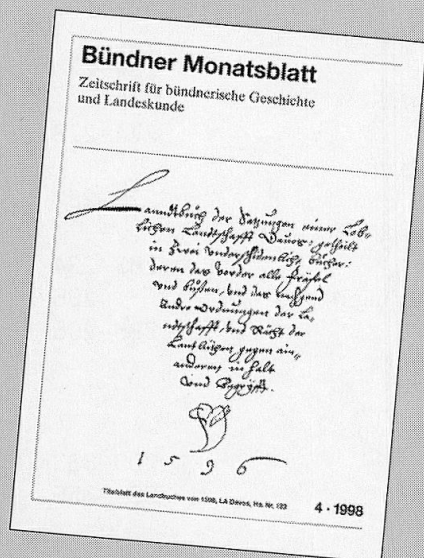 Bündner Monatsblatt
Zeitschrift für bündnerische Geschichte
und Landeskunde
Lanndtbuch der Satzungen einer Lob-
lichen Landtschafft Dauos: getheilt
in Zwei underschidenliche bücher:
deren das vorder alle fräfel
und bußen, und das nachgend
Andre Ordnungen der La-
ndtschafft, und Rächt der
Landtlüthen gegen ein-
anderen in halt
und begryfft.
1596
Titelblatt des Landbuches von 1596, LA Davos, Hs. Nr. 133
4 · 1998